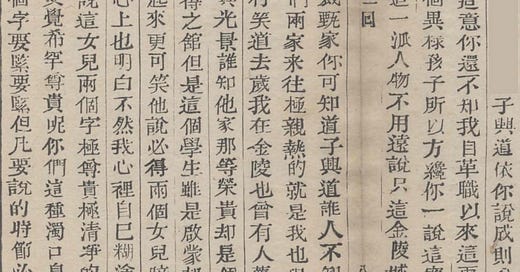 子興道依你說成則
意你還不知我自革職以來這
個異樣孩子所以方纔你一說這
這一派人物不用遠說只這金陵城
二回 八
甄家你可知道子興道誰人不
們兩家來往極親熱的就是我也
村笑道去歲我在金陵也曾有人薦
其光景誰知他家那等榮貴却是個
得之館但是這個學生雖是啟蒙却
起來更可笑他說必得兩個女兒陪
心上也明白不然我心裡自己糊塗
說這女兒兩個字極尊貴極清淨的
更覺希罕尊貴呢你們這種濁口臭
個字要緊要緊但凡要說的時節必